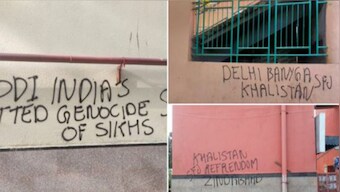 ODI INDIA'S
TTED GENOCIDE
OF SIKHS
DELHI BANGA
KHALISTAN
KHALISTAN
REFRENDOM
ZINDABAAD